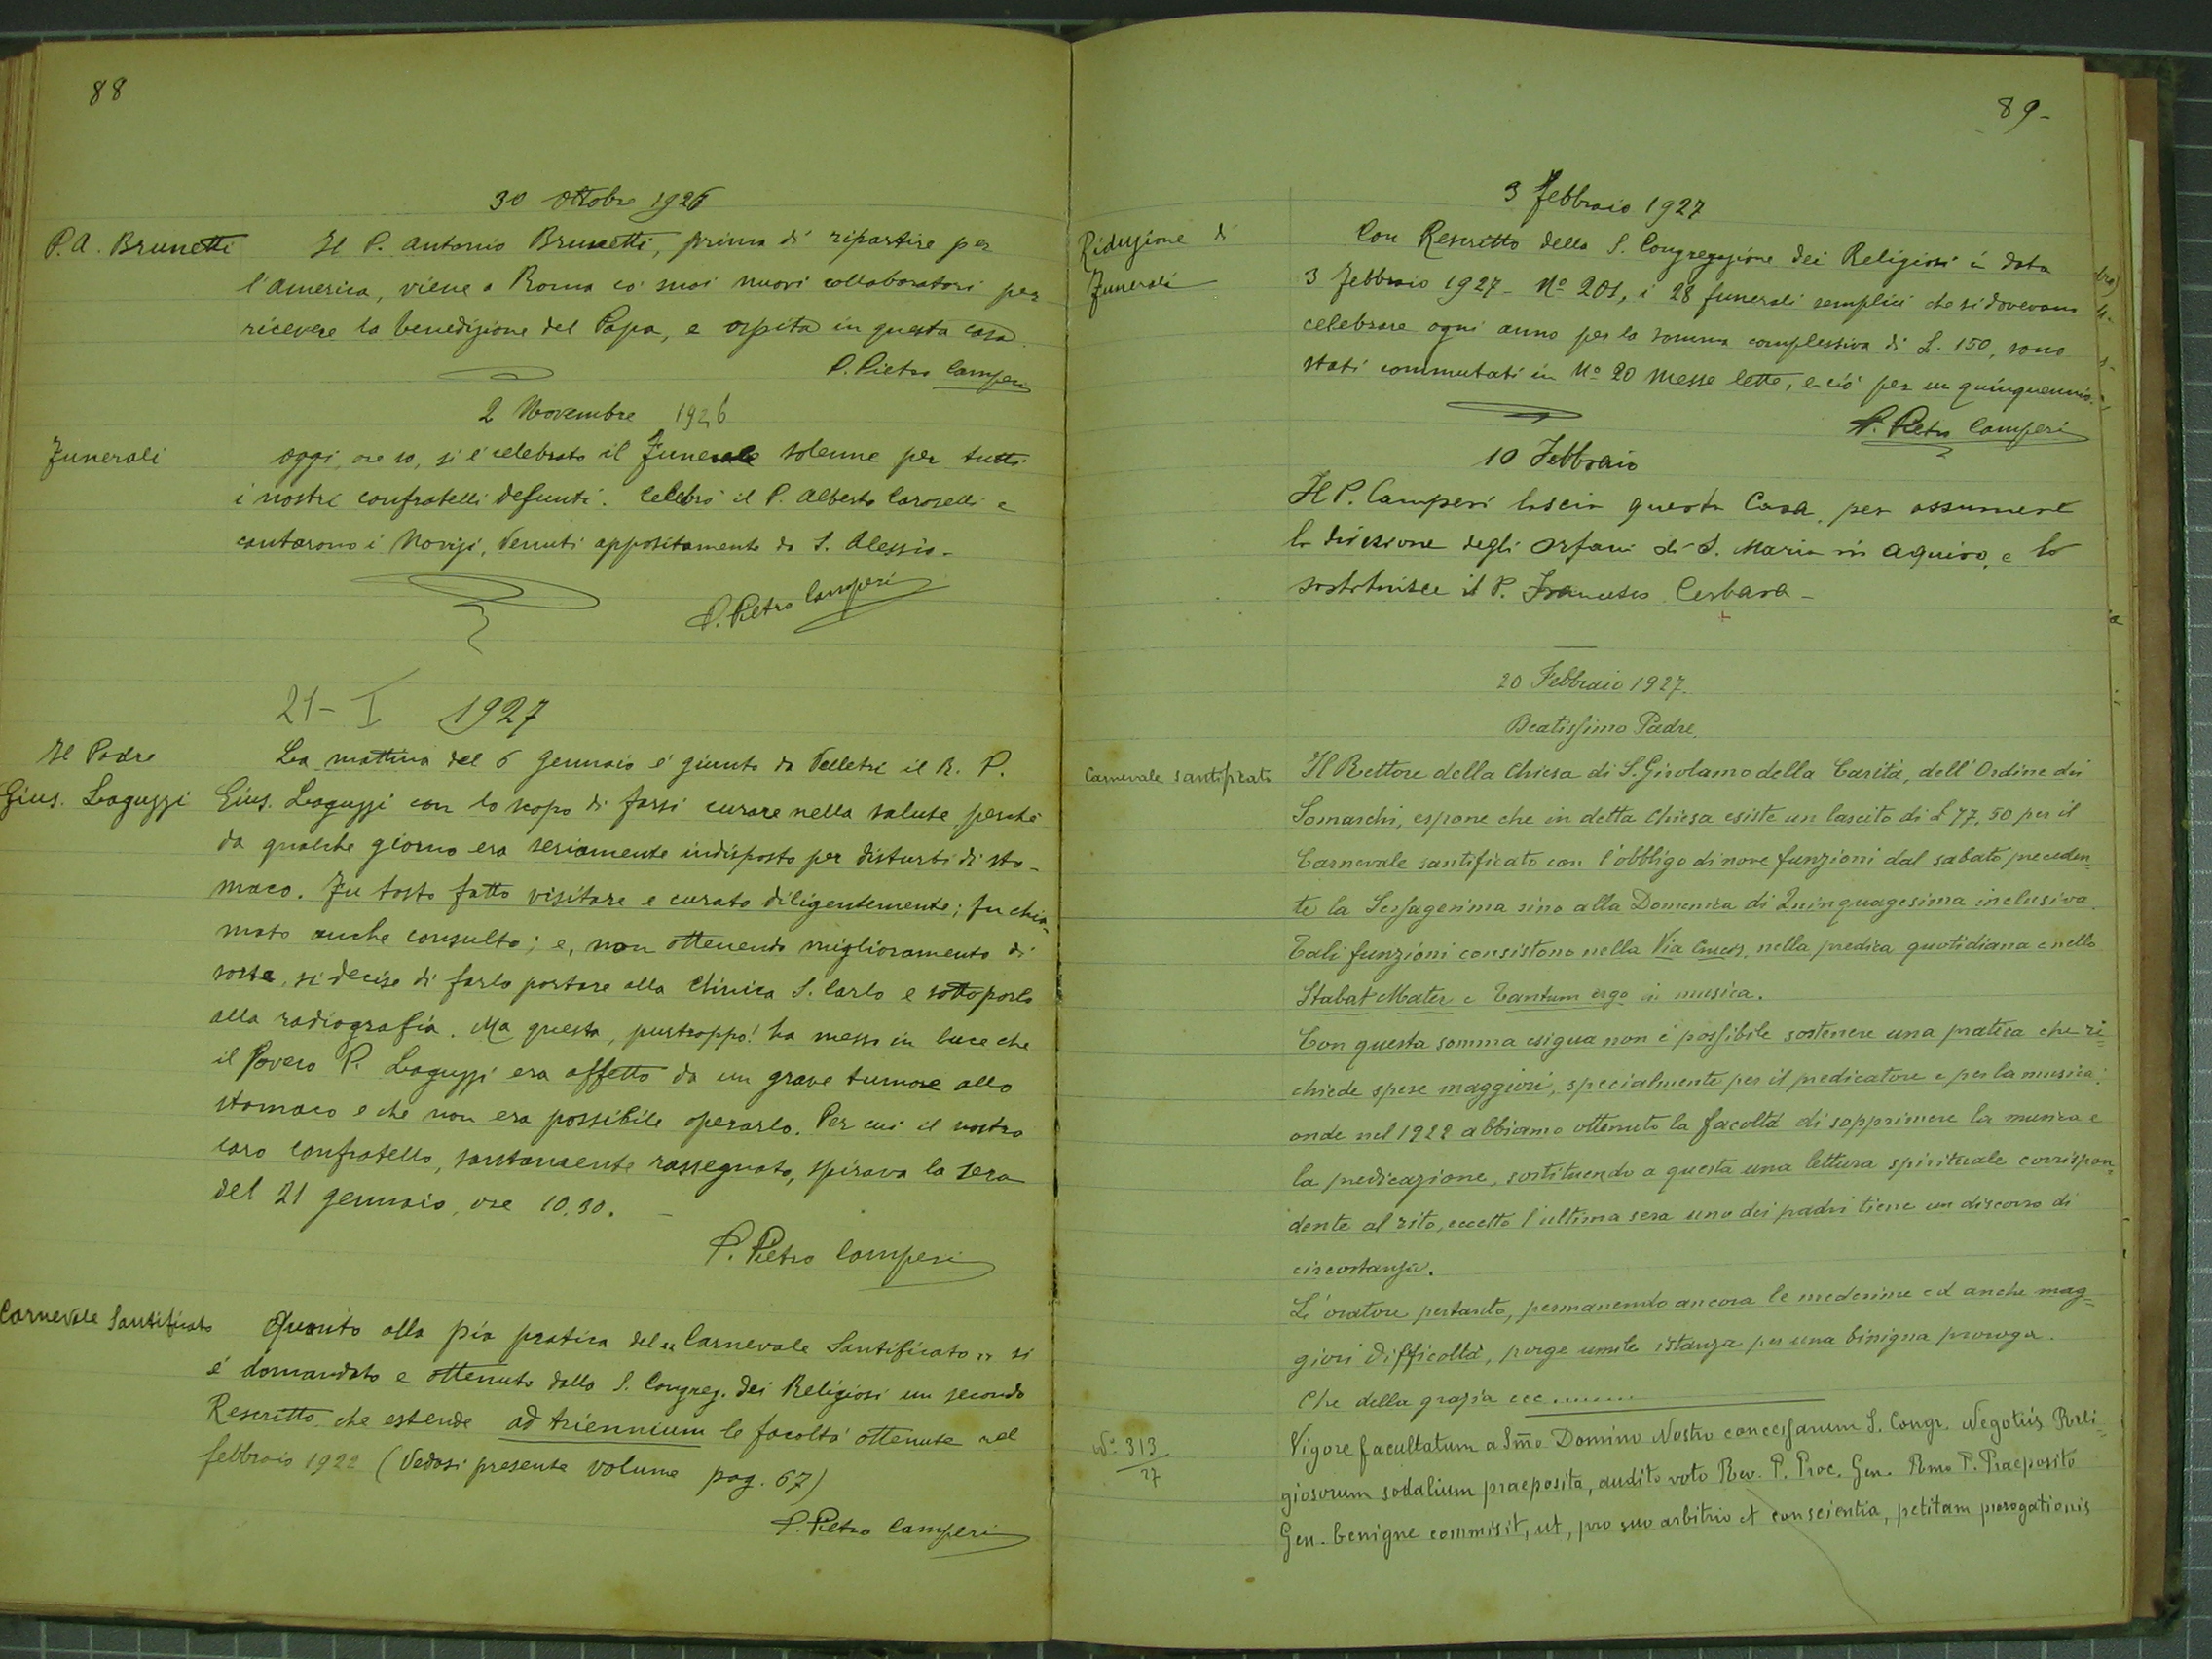 88
30 Ottobre 1926
P. A. Brunetti
Il P. Antonio Brunetti, prima di ripartire per
l'America, viene a Roma co' suoi nuovi collaboratori per
ricevere la benedizione del Papa, e ospita in questa casa.
P. Pietro Camperi
2 Novembre 1926
Funerali
Oggi, ore 10, si è celebrato il Funerale solenne per tutti
i nostri confratelli defunti. Celebrò il P. Alberto Caroselli e
cantarono i Novizi, venuti appositamente da S. Alessio.
P. Pietro Camperi
21 - I 1927
Il Padre
Gius. Laguzzi
La mattina del 6 Gennaio è giunto da Velletri il R. P.
Gius. Laguzzi con lo scopo di farsi curare nella salute, perchè
da qualche giorno era seriamente indisposto per disturbi di sto-
maco. Fu tosto fatto visitare e curato diligentemente; fu chia-
mato anche consulto; e, non ottenendo miglioramento di
sorta, si decise di farlo portare alla Clinica S. Carlo e sottoporlo
alla radiografia. Ma questa, purtroppo! ha messo in luce che
il Povero P. Laguzzi era affetto da un grave tumore allo
stomaco e che non era possibile operarlo. Per cui il nostro
caro confratello, santamente rassegnato, spirava la sera
del 21 gennaio, ore 10.30. -
P. Pietro Camperi
Carnevale Santificato
Quanto alla pia pratica del "Carnevale Santificato" si
è domandato e ottenuto dalla S. Congreg. dei Religiosi un secondo
Rescritto che estende ad triennium le facoltà ottenute nel
febbraio 1922 (Vedasi presente volume pag. 67)
P. Pietro Camperi
89-
3 Febbraio 1927
Riduzione di
Funerali
Con Rescritto della S. Congregazione dei Religiosi in data
3 Febbraio 1927 - No 201, i 28 funerali semplici che si dovevano
celebrare ogni anno per la somma complessiva di L. 150, sono
stati commutati in No 20 Messe lette, e ciò per un quinquennio.
P. Pietro Camperi
10 Febbraio
Il P. Camperi lascia questa Casa, per assumere
la direzione degli Orfani di S. Maria in Aquiro, e lo
sostituisce il P. Francesco Cerbara -
20 Febbraio 1927.
Beatissimo Padre.
Carnevale santificato
Il Rettore della Chiesa di S. Girolamo della Carità, dell'Ordine dei
Somaschi, espone che in detta Chiesa esiste un lascito di £ 77,50 per il
Carnevale santificato con l'obbligo di nove funzioni dal sabato preceden=
te la Sessagesima sino alla Domenica di Quinquagesima inclusiva.
Tali funzioni consistono nella Via Crucis, nella predica quotidiana e nello
Stabat Mater e Tantum ergo in musica.
Con questa somma esigua non è possibile sostenere una pratica che ri=
chiede spese maggiori, specialmente per il predicatore e per la musica;
onde nel 1922 abbiamo ottenuto la facoltà di sopprimere la musica e
la predicazione, sostituendo a questa una lettura spirituale corrispon=
dente al rito, eccetto l'ultima sera uno dei padri tiene un discorso di
circostanza.
L'oratore pertanto, permanendo ancora le medesime ed anche mag=
giori difficoltà, porge umile istanza per una binigna proroga.
Che della grazia ecc........
No. 313
27
Vigore facultatum a Smo Domino Nostro concessarum S. Congr. Negotiis Reli=
giosorum sodalium praeposita, audito voto Rev. P. Proc. Gen. Rmo P. Praeposito
Gen. benigne commisit, ut, pro suo arbitrio et conscientia, petitam prorogationis